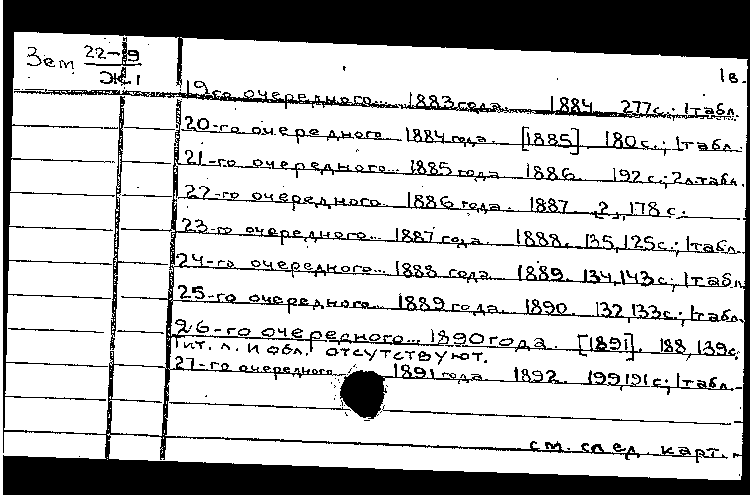 Зем 22-9 1в.
Ж1
19-го очередного... 1883 года. 1884. 277с.; 1 табл.
20-го очередного... 1884 года. [1885] 180 с.; 1 табл.
21-го очередного... 1885 года 1886. 192 с.; 2 л. табл.
22-го очередного... 1886 года. 1887 2, 178 с.
23-го очередного... 1887 года. 1888. 135, 125с.; 1 табл.
24-го очередного... 1888 года 1889. 134, 143с.; 1 табл.
25-го очередного... 1889 года. 1890. 132, 133с.; 1 табл.
26-го очередного... 1890 года. [1891]. 188, 139с.
Тит. л. и обл. отсутствуют.
27-го очередного... 1891 года. 1892. 199, 191с.; 1 табл.
см. след. карт.